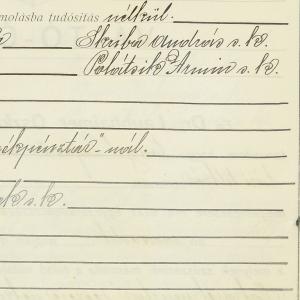 molásba tudósítás nélkül.
Skriba András s. k.
Polátsik Ármin s. k.
ékpénztár"-nál.
k s. k.